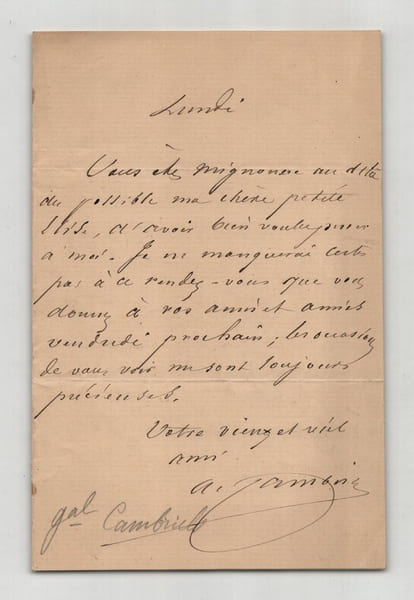 Lundi
Vous êtes mignonne au delà
du possible ma chère petite
Élise, d'avoir bien voulu penser
à moi. Je ne manquerai certes
pas à ce rendez-vous que vous
donnez à vos amis et amies
vendredi prochain; les occasions
de vous voir me sont toujours
précieuses.
Votre vieux et vieil
ami
a.
gal Cambriels